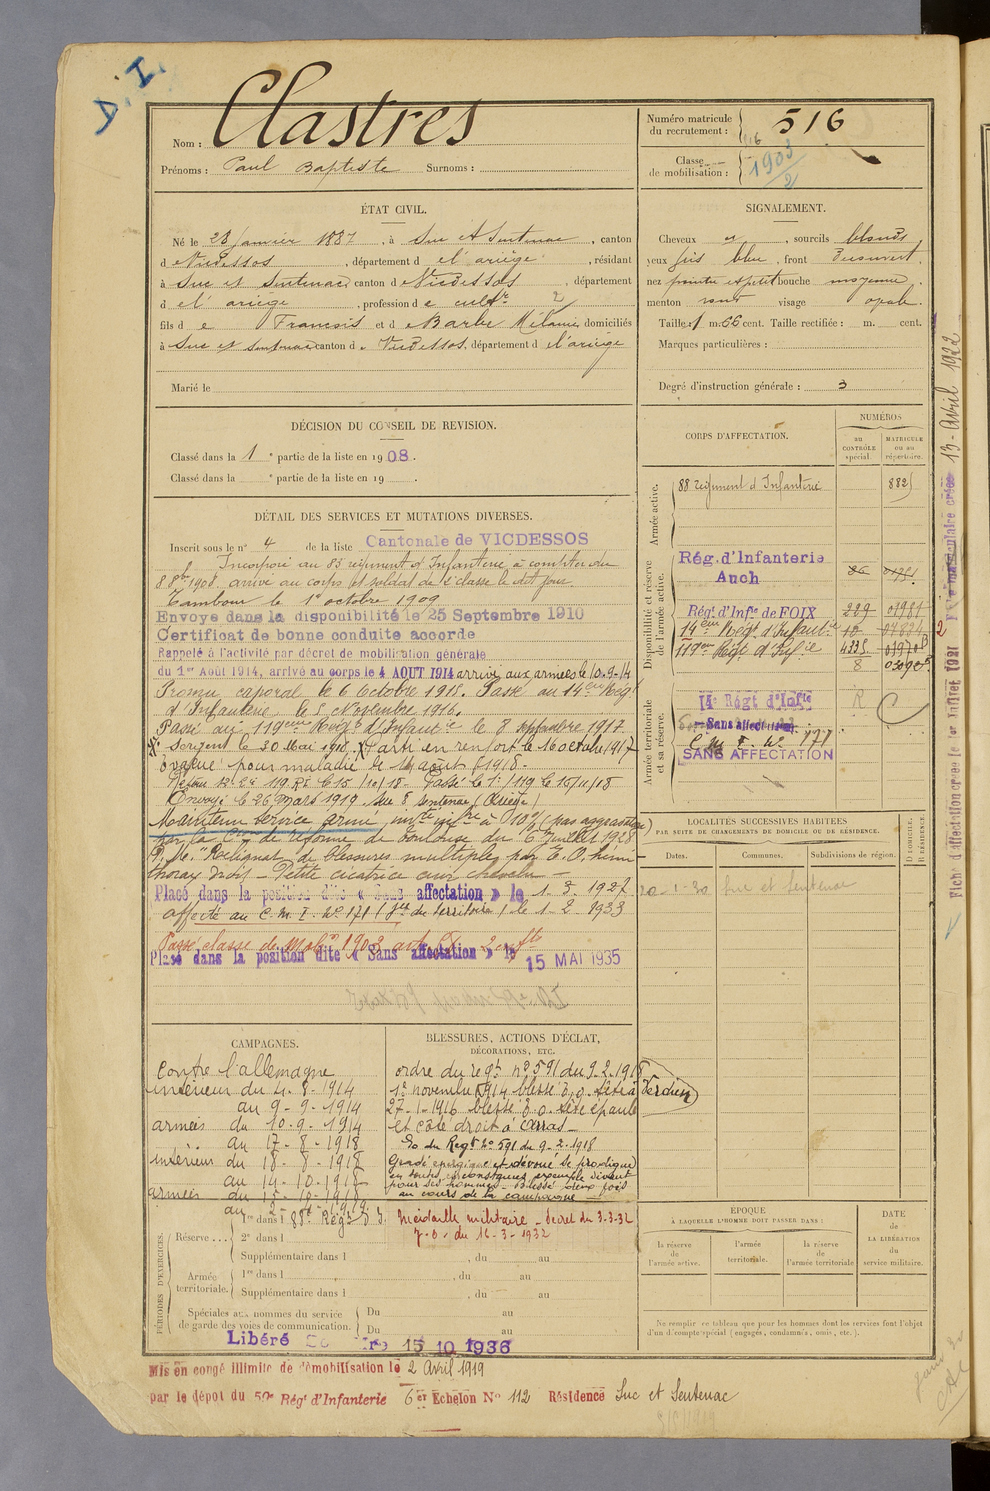 D. I.
Nom : Clastres
Prénoms : Paul Baptiste Surnoms :
Numéro matricule du recrutement : 516
Classe de mobilisation : 1903/2
ÉTAT CIVIL.
Né le 28 Janvier 1887, à Suc et Sentenac, canton
d e Vicdessos, département d e l'ariège, résidant
à Suc et Sentenac canton d e Vicdessos, département
d e l'ariège, profession d e cultr
fils d e François et d e Barbe Mélanie, domiciliés
à Suc et Sentenac canton d e Vicdessos, département d e l'ariège
Marié le
SIGNALEMENT.
Cheveux , sourcils blonds
yeux gris bleu, front découvert
nez bouche moyenne
menton rond visage opale.
Taille : 1 m. 66 cent. Taille rectifiée : m. cent.
Marques particulières :
Degré d'instruction générale : 3
DÉCISION DU CONSEIL DE REVISION.
Classé dans la 1e partie de la liste en 1908.
Classé dans la e partie de la liste en 19 .
DÉTAIL DES SERVICES ET MUTATIONS DIVERSES.
Inscrit sous le n° 4 de la liste Cantonale de VICDESSOS
Incorporé au 88 régiment d'Infanterie à compter du
8 8bre 1908, arrivé au corps et soldat de 2e classe le dit jour
Tambour le 1er octobre 1909
Envoyé dans la disponibilité le 25 Septembre 1910
Certificat de bonne conduite accordé
Rappelé à l'activité par décret de mobilisation générale
du 1er Août 1914, arrivé au corps le 4 AOUT 1914 arrivé aux armées le 10.9.14
Promu caporal le 6 Octobre 1915. Passé au 14eme Régt
d'Infanterie le 5 Novembre 1916.
Passé au 119eme Régt d'Infanterie le 8 septembre 1917
Sergent le 30 Mai 1918. Parti en renfort le 16 octobre 1917
évacué pour maladie le août 1918.
119 RI le 15/10/18. Passé le 119 le 15/11/18
Envoyé le 26 Mars 1919 Suc & Sentenac (Ariège)
Maintenu service armé, invte infre à 10% (pas aggravation)
par la Cion de réforme de Toulouse du 6 Juillet 1928
P.M. "Reliquat de blessures multiples par E.O. hémi
thorax droit - Petite cicatrice cuir chevelu -
Placé dans la position dite « Sans affectation » le 1. 3. 1927
affecté au C. M. I. N° 171 (du territoire) le 1-2 1933
Passé classe de Mobon 1903 2 enfts
Placé dans la position dite « Sans affectation » le 15 MAI 1935
CORPS D'AFFECTATION.
NUMÉROS
au CONTRÔLE spécial.
MATRICULE ou au répertoire.
Armée active.
88 régiment d'Infanterie 8825
Disponibilité et réserve de l'armée active.
Rég. d'Infanterie
Auch
Régt d'Infie de FOIX 229 01981
14eme Régt d'Infanterie 10 07834
119eme Régt d'Infie 4335 03970
8 03090
Armée territoriale et sa réserve.
14e Régt d'Infie
Sans affectation
C. M. I. N° 171
SANS AFFECTATION
LOCALITÉS SUCCESSIVES HABITÉES
PAR SUITE DE CHANGEMENTS DE DOMICILE OU DE RÉSIDENCE.
Dates. Communes. Subdivisions de région. D DOMICILE. R RÉSIDENCE.
20-1-30 Suc et Sentenac
CAMPAGNES.
Contre l'allemagne
intérieur du 4-8-1914
au 9-9-1914
armées du 10.9-1914
au 17-8-1918
intérieur du 18-8-1918
au 14-10-1918
armées du 15-10-1918
au 2-
BLESSURES, ACTIONS D'ÉCLAT,
DÉCORATIONS, ETC.
ordre du regt n° 591 du 9.2.1918
1er novembre 1914 blessé E.O. tête à Verdun
27-1-1916 blessé E.O. tête épaule
et côté droit à Arras -
Go du Regt N° 591 du 9-2-1918
Gradé énergique et dévoué se prodigue
en toutes circonstances, exemple vivant
pour ses hommes - Blessé deux fois
au cours de la campagne
Médaille militaire - Décret du 3-3-32
J.O. du 16-3-1932
PÉRIODES D'EXERCICES.
Réserve ... 1re dans l 88e Régt d'I.
2e dans l
Supplémentaire dans l , du au
Armée territoriale. 1re dans l , du au
Supplémentaire dans l , du au
Spéciales aux hommes du service de garde des voies de communication. Du au
Du au
Libéré 15 10 1936
ÉPOQUE
À LAQUELLE L'HOMME DOIT PASSER DANS :
la réserve de l'armée active.
l'armée territoriale.
la réserve de l'armée territoriale
DATE de LA LIBÉRATION du service militaire.
Ne remplir ce tableau que pour les hommes dont les services font l'objet
d'un décompte spécial (engagés, condamnés, omis, etc.).
Mis en congé illimité de démobilisation le 2 Avril 1919
par le dépôt du 59e Régt d'Infanterie 6er Echelon N° 112 Résidence Suc et Sentenac
Fiche d'affectation créée le 1er Juillet 1921
Fiche matriculaire créée 13 - Avril 1922